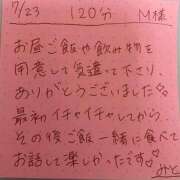 7/23 120分 M様
お昼ご飯や飲み物を
用意して気遣って下さり、
ありがとうございました
最初イチャイチャしてから、
その後ご飯一緒に食べて
お話して楽しかったです♡